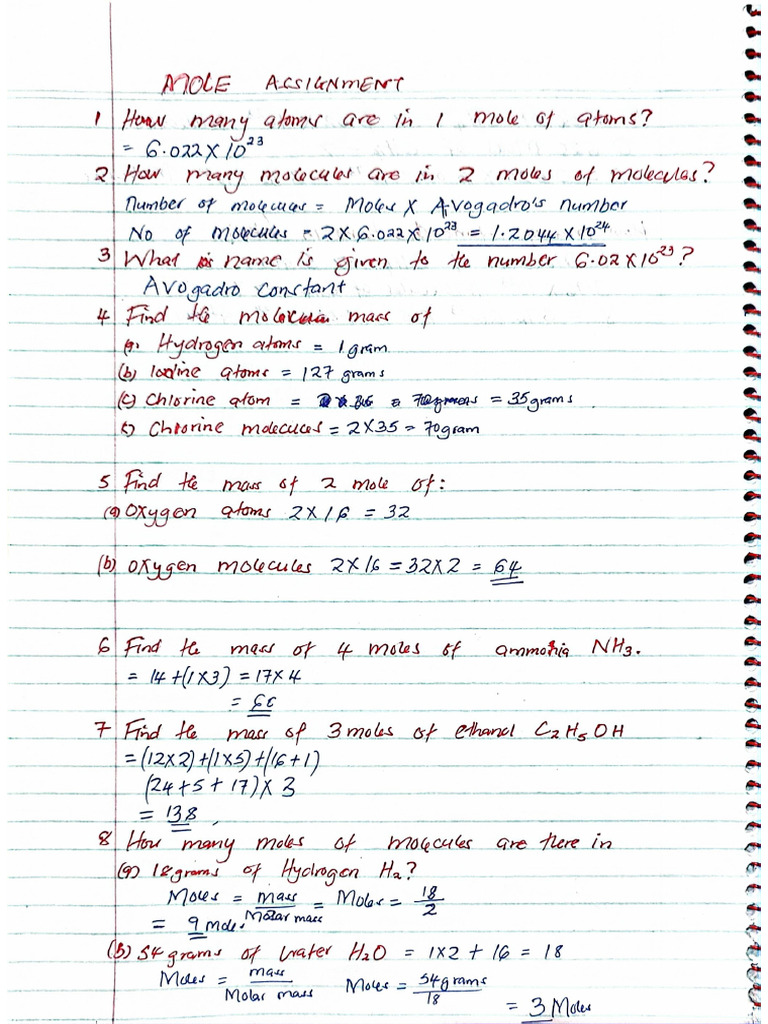 MOLE ASSIGNMENT
1 How many atoms are in 1 mole of atoms?
= 6.022 X 10²³
2 How many molecules are in 2 moles of molecules?
Number of molecules = Moles X Avogadro's number
No of molecules = 2 X 6.022 X 10²³ = 1.2044 X 10²⁴
3 What is name is given to the number 6.02 X 10²³?
Avogadro constant
4 Find the molecular mass of
(a) Hydrogen atoms = 1 gram
(b) Iodine atoms = 127 grams
(c) Chlorine atom = = 35 grams
(c) Chlorine molecules = 2 X 35 = 70 gram
5 Find the mass of 2 mole of:
(a) Oxygen atoms 2 X 16 = 32
(b) Oxygen molecules 2 X 16 = 32 X 2 = 64
6 Find the mass of 4 moles of ammonia NH3.
= 14 + (1 X 3) = 17 X 4
=
7 Find the mass of 3 moles of ethanol C2H5OH
= (12 X 2) + (1 X 5) + (16 + 1)
(24 + 5 + 17) X 3
= 138
8 How many moles of molecules are there in
(a) 18 grams of Hydrogen H2?
Moles = mass / Molar mass = Moles = 18 / 2
= 9 mole.
(b) 54 grams of water H2O = 1 X 2 + 16 = 18
Moles = mass / Molar mass Moles = 54 grams / 18
= 3 Moles